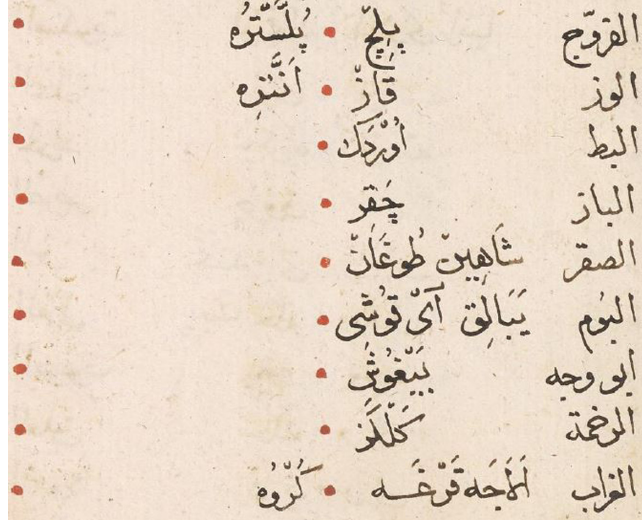 الفرّوج پِلِچْ پُلَّسْتَرُه
الوز قَازْ اَنَّتِرَه
البط أُورْدَك
الباز چَقِر
الصقر شَاهِينْ طُوغَانْ
البُوم يَبَالِق آىْ قُوشى
ابو وجه بَيْغُوشْ
الرخمة كَلَلَز
الغراب اَلَاجَه قَرْغَه كُرُّوُه